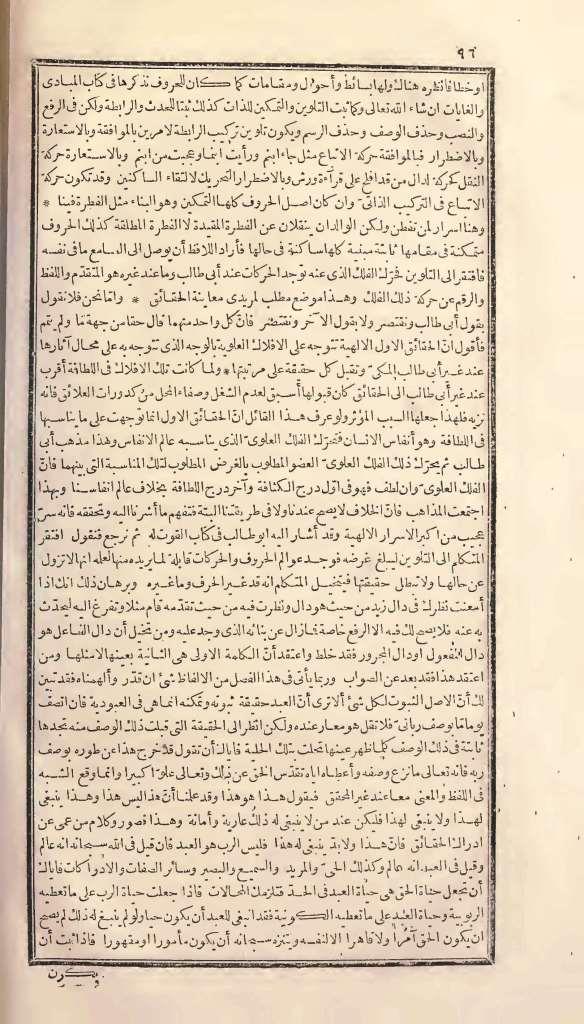 ٩٦
او خطا فانظره هنالك ولها بسائط وأحوال ومقامات كما كان للحروف نذكرها فى كتاب المبادى
والغايات ان شاء الله تعالى وكما ثبت التلوين والتمكين للذات كذلك ثبتا للحدث والرابطة ولكن فى الرفع
والنصب وحذف الوصف وحذف الرسم ويكون تلوين تركيب الرابطة لامرين بالموافقة وبالاستعارة
وبالاضطرار فبالموافقة حركة الاتباع مثل جاء ابنم ورأيت ابنما وعجبت من ابنم وبالاستعارة حركة
النقل كحركة لدال من قد افلح على قراءة ورش وبالاضطرار التحريك لالتقاء الساكنين وقد تكون حركة
الاتباع فى التركيب الذاتى وان كان اصل الحروف كلها التمكين وهو البناء مثل الفطرة فينا *
وهنا اسرار لمن تفطن ولكن الوالدان ينقلان عن الفطرة المقيدة لا الفطرة المطلقة كذلك الحروف
متمكنة فى مقامها ثابتة مبنية كلها ساكنة فى حالها فأراد اللافظ أن يوصل الى السامع ما فى نفسه
فافتقر الى التلوين فحرّك الفلك الذى عنه توجد الحركات عند أبى طالب وما عند غيره هو المتقدم واللفظ
والرقم عن حركة ذلك الفلك وهذا موضع مطلب لمريدى معاينة الحقائق * وامّا نحن فلا نقول
بقول أبى طالب ونقتصر ولا بقول الآخر ونقتصر فانّ كل واحد منهما قال حقا من جهة مّا ولم يتم
فأقول انّ الحقائق الاول الالهية تتوجه على الافلاك العلوية بالوجه الذى تتوجه به على محال آثارها
عند غير أبى طالب المكىّ وتقبل كل حقيقة على مرتبتها * ولما كانت تلك الافلاك فى اللطافة أقرب
عند غير أبى طالب الى الحقائق كان قبولها أسبق لعدم الشغل وصفاء المحل من كدورات العلائق فانه
نزيه فلهذا جعلها السبب المؤثر ولو عرف هذا القائل انّ الحقائق الاول انما توجهت على ما يناسبها
فى اللطافة وهو أنفاس الانسان فتحرّك الفلك العلوىّ الذى يناسبه عالم الانفاس وهذا مذهب أبى
طالب ثم يحرّك ذلك الفلك العلوىّ العضو المطلوب بالغرض المطلوب لتلك المناسبة التى بينهما فانّ
الفلك العلوىّ وان لطف فهو فى اوّل درج الكثافة وآخر درج اللطافة بخلاف عالم انفاسنا وبهذا
اجتمعت المذاهب فانّ الخلاف لا يصح عندنا ولا فى طريقتنا البتة فتفهم ما أشرنا اليه وتحققه فانه سرّ
عجيب من اكبر الاسرار الالهية وقد أشار اليه ابو طالب فى كتاب القوت له ثم نرجع فنقول افتقر
المتكلم الى التلوين ليبلغ غرضه فوجد عوالم الحروف والحركات قابلة لما يريده منها لعلمه انها لا تزول
عن حالها ولا تبطل حقيقتها فيتخيل المتكلم انه قد غير الحرف وما غيره وبرهان ذلك انك اذا
أمعنت نظرك فى دال زيد من حيث هو دال ونظرت فيه من حيث تقدّمه قام مثلا وتفرغ اليه ليحدّث
به عنه فلا يصح لك فيه الا الرفع خاصة فما زال عن بنائه الذى وجد عليه ومن تخيل أن دال الفاعل هو
دال المفعول او دال المجرور فقد خلط واعتقد أنّ الكلمة الاولى هى الثانية بعينها لا مثلها ومن
اعتقد هذا فقد بعد عن الصواب وربما يأتى فى هذا الفصل من الالفاظ شئ ان قدّر وألهمناه فقد تبين
لك أنّ الاصل الثبوت لكل شئ ألا ترى أنّ العبد حقيقة ثبوته وتمكنه انما هى فى العبودية فان اتصف
يوما مّا بوصف ربانىّ فلا تقل هو معار عنده ولكن انظر الى الحقيقة التى قبلت ذلك الوصف منه تجدها
ثابتة فى ذلك الوصف كلما ظهر عينها تحلت بتلك الحلية فاياك أن تقول قد خرج هذا عن طوره بوصف
ربه فانه تعالى ما نزع وصفه وأعطاه اياه تقدّس الحق عن ذلك وتعالى علوّا كبيرا وانما وقع الشبه
فى اللفظ والمعنى معا عند غير المحقق فيقول هذا هو هذا وقد علمنا أنّ هذا ليس هذا وهذا ينبغى
لهذا ولا ينبغى لهذا فليكن عند من لا ينبغى له ذلك عارية وأمانة وهذا قصور وكلام من عمى عن
ادراك الحقائق فانّ هذا ولا بدّ ينبغى له هذا فليس الرب هو العبد فان قيل فى الله سبحانه انه عالم
وقيل فى العبد انه عالم وكذلك الحىّ والمريد والسميع والبصير وسائر الصفات والادراكات فاياك
أن تجعل حياة الحق هى حياة العبد فى الحدّ فتلزمك المحالات فاذا جعلت حياة الرب على ما تعطيه
الربوبية وحياة العبد على ما تعطيه الكونية فقد انبغى للعبد أن يكون حيا ولو لم ينبغ له ذلك لم يصح
ان يكون الحق آمرا ولا قاهرا الا لنفسه ويتنزه سبحانه أن يكون مأمورا او مقهورا فاذا ثبت أن
ويكون